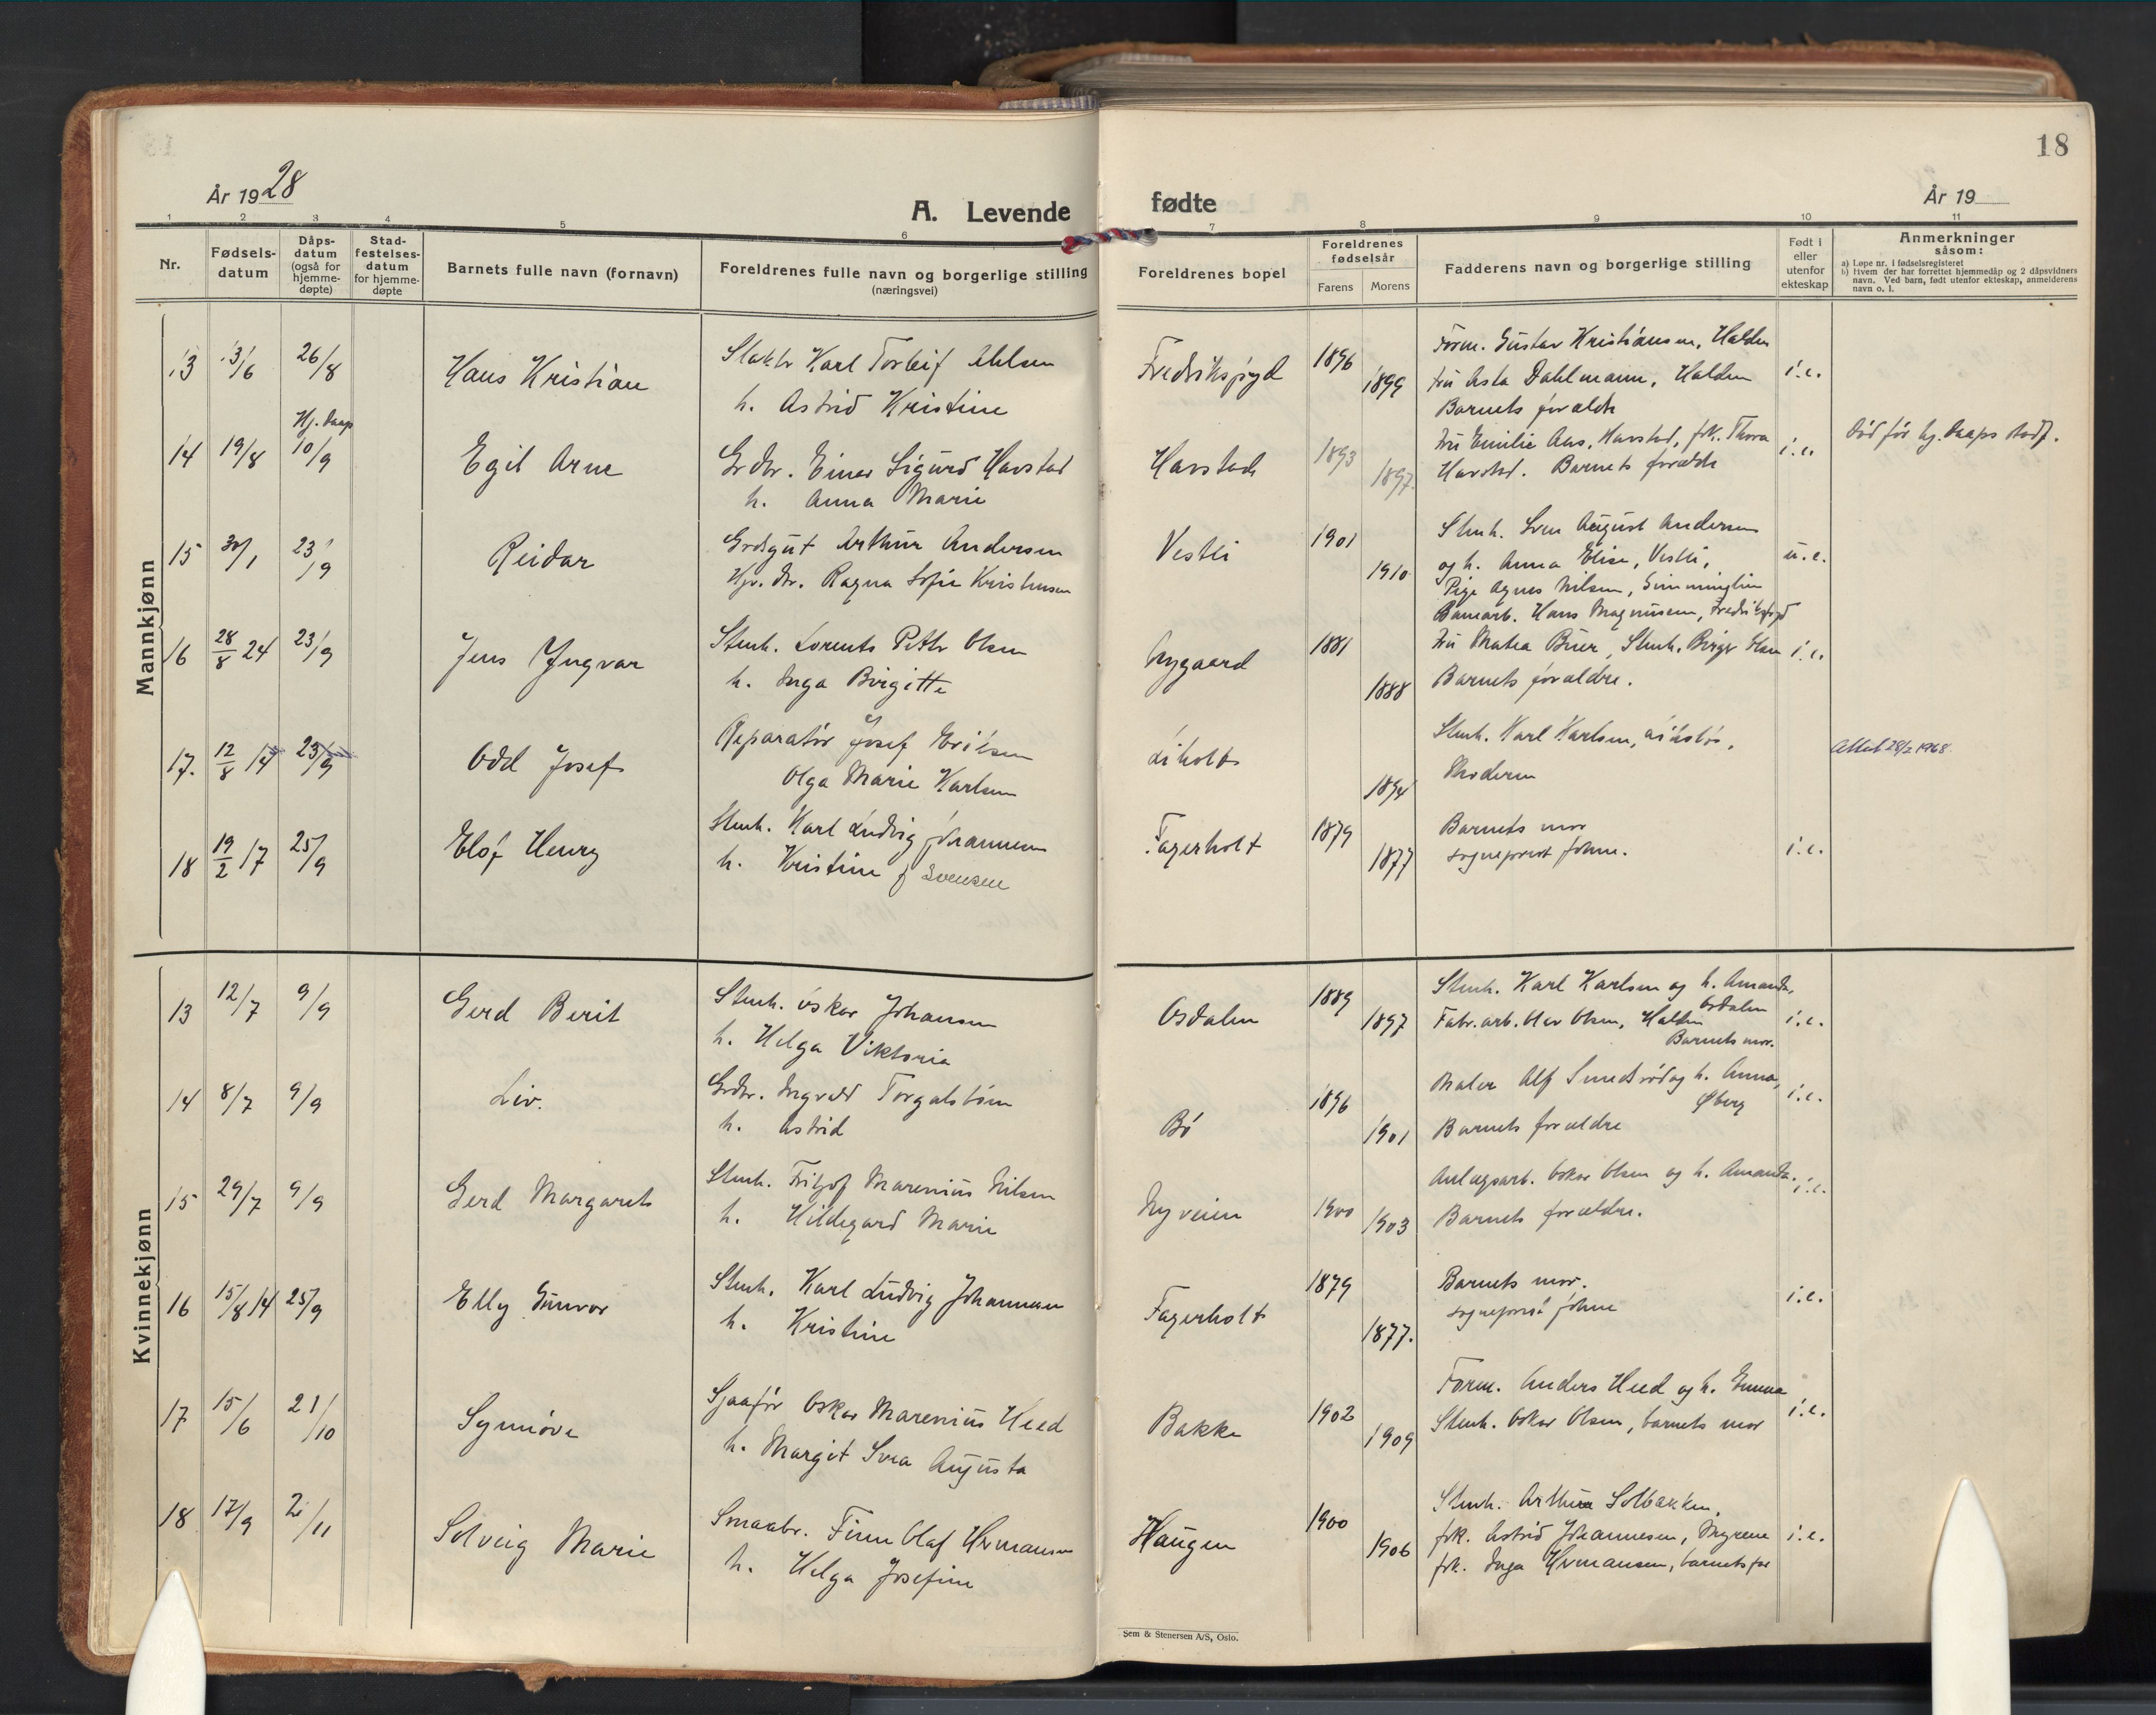 18
År 1928
A. Levende
fødte
År 19
1 2 3 4 5 6 7 8 9 10 11
Nr.
Fødsels-
datum
Dåps-
datum
(også for
hjemme-
døpte)
Stad-
festelses-
datum
for hjemme-
døpte
Barnets fulle navn (fornavn)
Foreldrenes fulle navn og borgerlige stilling
(næringsvei)
Foreldrenes bopel
Foreldrenes
fødselsår
Farens Morens
Fadderens navn og borgerlige stilling
Født i
eller
utenfor
ekteskap
Anmerkninger
såsom:
a) Løpe nr. i fødselsregisteret
b) Hvem der har forrettet hjemmedåp og 2 dåpsvidners
navn. Ved barn, født utenfor ekteskap, anmelderens
navn o. l.
Mannkjønn
13 13/6 26/8 Hans Kristian
Karl Torleif
h. Astrid Kristine
1896
1899
Form. Gustav Kristiansen, Halden
fru Asta Dahlmann, Halden
Barnets forældre
i.e.
Hj. daap
14 19/8 10/9 Egil Arne
Grdbr. Einar Sigurd Havstad
h. Anna Marie
Havstad
1893
1897.
fru Emilie Aas, Havstad, frk. Thora
Havstad. Barnets forældre
i.e.
Død før hj. daaps stadf.
15 30/1 23/9 Reidar
Grdsgut Arthur Andersen
Hjv. dtr. Ragna Sofie Kristensen
Vestli
1901
1910
Stenh. Sven August Andersen
og h. Anna Elise, Vestli,
Pige Agnes Nilsen,
Hans Magnusen,
u.e.
16 28/8 24 23/9 Jens Yngvar
Stenh. Lorents Petter Olsen
h. Inga Birgitte
Nygaard
1881
1888
fru Matea Buer, Stenh. Birger Olsen
Barnets forældre.
i.e.
17. 12/8 14 23/9 Odd Josef
Reparatør Josef Eriksen
Olga Marie Karlsen
Liholt
1894
Stenh. Karl Karlsen,
Moderen
Attest 28/2 1968.
18 19/2 17 25/9 Elof Henry
Stenh. Karl Ludvig Johannesen
h. Kristine f Svensen
Fagerholt
1879
1877
Barnets mor
sogneprest Johne.
i.e.
Kvinnekjønn
13 12/7 9/9 Gerd Berit
Stenh. Oskar Johansen
h. Helga Viktoria
Osdalen
1889
1897
Stenh. Karl Karlsen og h. Amanda,
Osdalen
Fabr.arb. Olav Olsen, Halden
Barnets mor.
i.e.
14 8/7 9/9 Liv.
Grdbr. Ingvald Torgalsbøen
h. Astrid
Bø
1896
1901
Maler Alf Smedsrød og h. Anna,
Øberg
Barnets forældre
i.e.
15 29/7 9/9 Gerd Margareth
Stenh. Fritjof Marenius Nilsen
h. Hildegard Marie
Nyveien
1900
1903
Anlægsarb. Oskar Olsen og h. Amanda.
Barnets forældre.
i.e.
16 15/8 14 25/9 Elly Gunvor
Stenh. Karl Ludvig Johannesen
h. Kristine
Fagerholt
1879
1877.
Barnets mor.
sogneprest Johne
i.e.
17 15/6 21/10 Synnøve
Sjaafør Oskar Marenius Heed
h. Margit Svea Augusta
Bakke
1902
1909
Form. Anders Heed og h. Emma
Stenh. Oskar Olsen, barnets mor
i.e.
18 17/9 2/11 Solveig Marie
Smaabr. Finn Olaf Hermansen
h. Helga Josefine
Haugen
1900
1906
Stenh. Arthur Solbakken,
frk. Astrid Johannesen, Myrene
frk. Inga Hermansen, barnets far
i.e.
Sem & Stenersen A/S, Oslo.